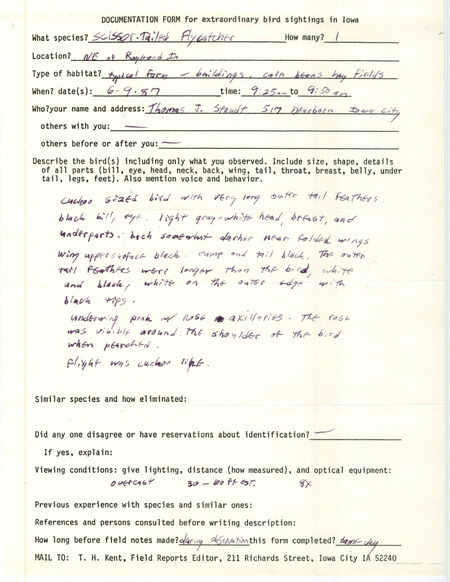 DOCUMENTATION FORM for extraordinary bird sightings in Iowa
What species? Scissor-Tailed Flycatcher How many? 1
Location? NE of Raymond Ia.
Type of habitat? typical farm - buildings, corn beans hay fields
When? date(s): 6-9-87 time: 9:25am to 9:50am
Who?your name and address: Thomas J. Staudt 517 Dearborn Iowa City
others with you: —
others before or after you: —
Describe the bird(s) including only what you observed. Include size, shape, details
of all parts (bill, eye, head, neck, back, wing, tail, throat, breast, belly, under
tail, legs, feet). Also mention voice and behavior.
cuckoo sized bird with very long outer tail feathers.
black bill, eye. light gray-white head, breast, and
underparts. back somewhat darker near folded wings
wing uppersurface black. rump and tail black. The outer
tail feathers were longer than the bird, white
and black, white on the outer edge with
black tips.
underwing pink w/ rose axillaries. The rose
was visible around the shoulder of the bird
when perched.
flight was cuckoo like.
Similar species and how eliminated:
Did any one disagree or have reservations about identification? —
If yes, explain:
Viewing conditions: give lighting, distance (how measured), and optical equipment:
overcast 30-60 ft est. 8x
Previous experience with species and similar ones:
References and persons consulted before writing description:
How long before field notes made? during observation this form completed? same day
MAIL TO: T. H. Kent, Field Reports Editor, 211 Richards Street, Iowa City IA 52240